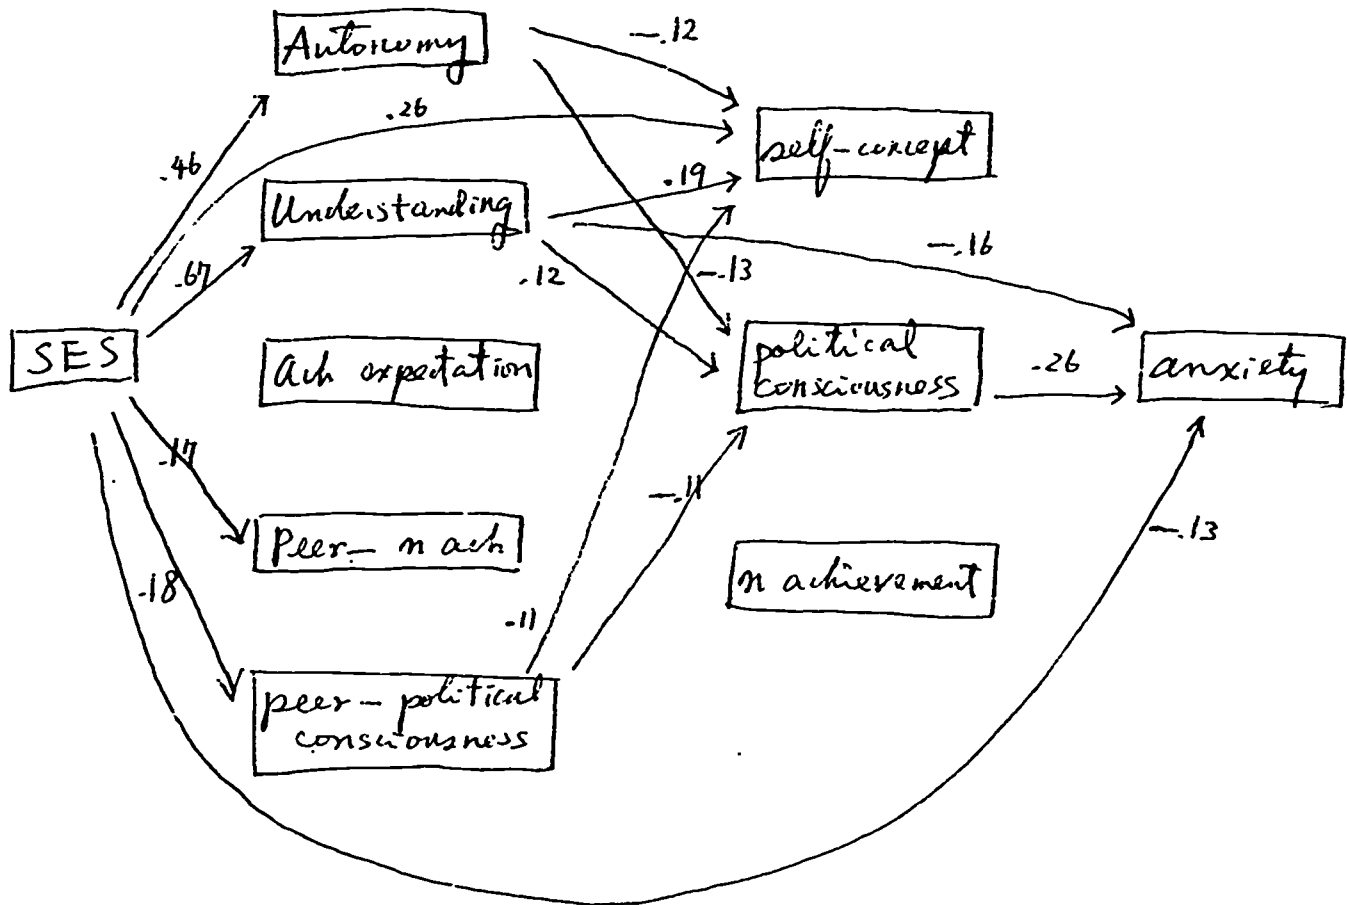 Autonomy
-.12
.26
self-concept
.46
.19
Understanding
-.16
.67
.12
-.13
SES
Ach expectation
political
consciousness
.26
anxiety
.17
-.11
Peer- n ach
-.13
n achievement
.18
.11
peer - political
consciousness